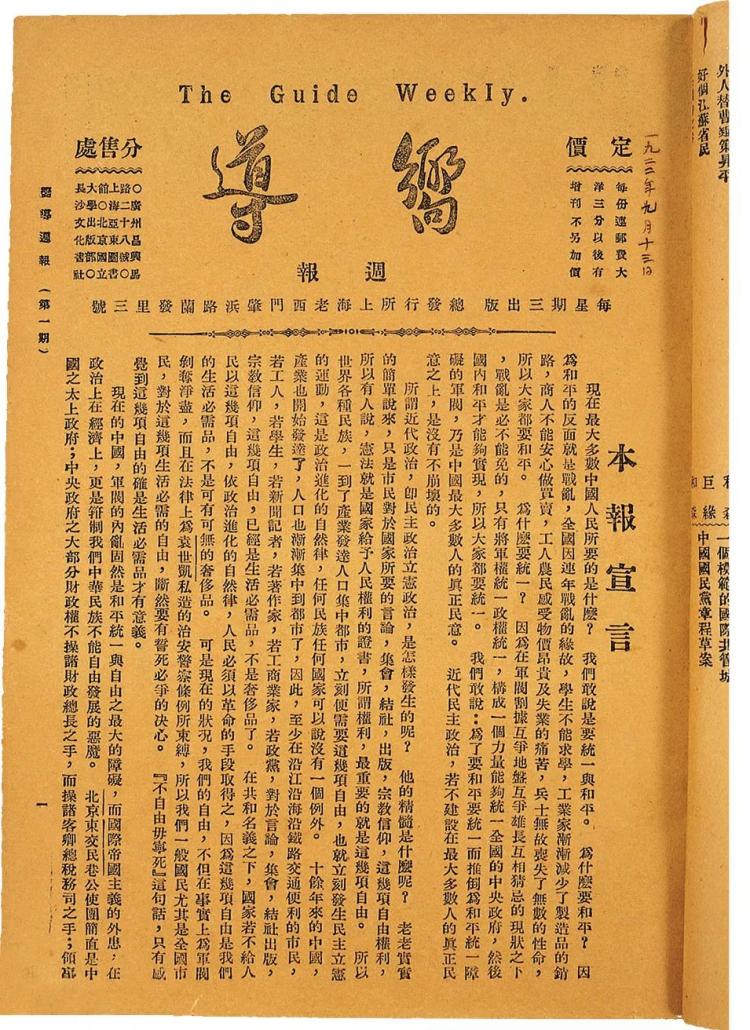 The Guide Weekly.
嚮導
週報
定價
每份連郵費大
洋三分以後有
增刊不另加價
一九二二年九月十三日
分售處
○廣州昌興馬
路二十八號○
上海亞東圖書
館○北京國立
大學出版部○
長沙文化書社
每星期三出版 總發行所上海老西門肇浜路蘭發里三號
本報宣言
現在最大多數中國人民所要的是什麼? 我們敢說是要統一與和平。 爲什麼要和平? 因
爲和平的反面就是戰亂,全國因連年戰亂的緣故,學生不能求學,工業家漸漸減少了製造品的銷
路,商人不能安心做買賣,工人農民感受物價昂貴及失業的痛苦,兵士無故喪失了無數的性命,
所以大家都要和平。 爲什麼要統一? 因爲在軍閥割據互爭地盤互爭雄長互相猜忌的現狀之下
,戰亂是必不能免的,只有將軍權統一政權統一,構成一個力量能夠統一全國的中央政府,然後
國內和平才能夠實現,所以大家都要統一。 我們敢說:爲了要和平要統一而推倒爲和平統一障
礙的軍閥,乃是中國最大多數人的眞正民意。 近代民主政治,若不建設在最大多數人的眞正民
意之上,是沒有不崩壞的。
所謂近代政治,即民主政治立憲政治,是怎樣發生的呢? 他的精髓是什麼呢? 老老實實
的簡單說來,只是市民對於國家所要的言論,集會,結社,出版,宗教信仰,這幾項自由權利,
所以有人說,憲法就是國家給予人民權利的證書,所謂權利,最重要的就是這幾項自由。 所以
世界各種民族,一到了產業發達人口集中都市,立刻便需要這幾項自由,也就立刻發生民主立憲
的運動,這是政治進化的自然律,任何民族任何國家可以說沒有一個例外。 十餘年來的中國,
產業也開始發達了,人口也漸漸集中到都市了,因此,至少在沿江沿海沿鐵路交通便利的市民,
若工人,若學生,若新聞記者,若著作家,若工商業家,若政黨,對於言論,集會,結社出版,
宗教信仰,這幾項自由,已經是生活必需品,不是奢侈品了。 在共和名義之下,國家若不給人
民以這幾項自由,依政治進化的自然律,人民必須以革命的手段取得之,因爲這幾項自由是我們
的生活必需品,不是可有可無的奢侈品。 可是現在的狀況,我們的自由,不但在事實上爲軍閥
剝奪淨盡,而且在法律上爲袁世凱私造的治安警察條例所束縛,所以我們一般國民尤其是全國市
民,對於這幾項生活必需的自由,斷然要有誓死必爭的決心。 『不自由毋寧死』這句話,只有感
覺到這幾項自由的確是生活必需品才有意義。
現在的中國,軍閥的內亂固然是和平統一與自由之最大的障礙,而國際帝國主義的外患,在
政治上在經濟上,更是箝制我們中華民族不能自由發展的惡魔。 北京東交民巷公使團簡直是中
國之太上政府;中央政府之大部分財政權不操諸財政總長之手,而操諸客卿總稅務司之手;領事
嚮導週報(第一期)
一
好個江蘇省民
巨緣
一個模範的國際共管城
中國國民黨章程草案